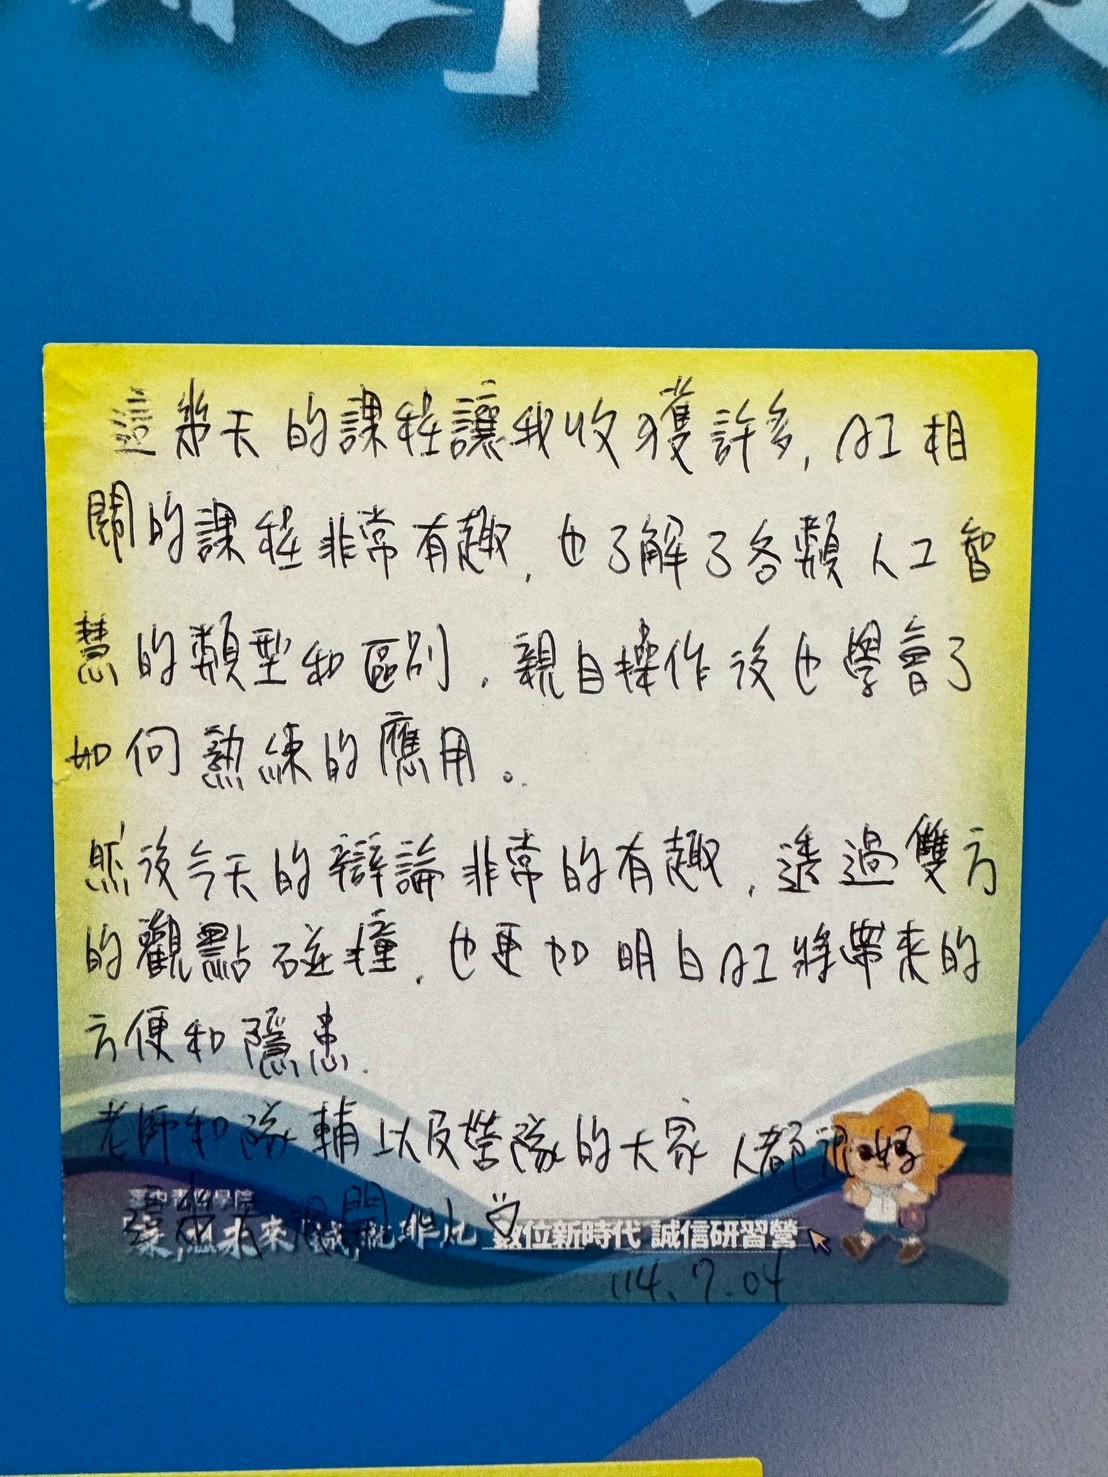 這幾天的課程讓我收獲許多, AI相
關的課程非常有趣, 也了解了各類人工智
慧的類型和區別, 親自操作後也學會了
如何熟練的應用。
然後今天的辯論非常的有趣, 透過雙方
的觀點碰撞, 也更加明白AI將帶來的
方便和隱患.
老師和隊輔以及營隊的大家人都很好
這幾天很開心♡
數位新時代 誠信研習營
114.7.04